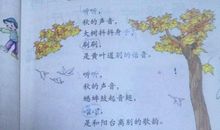 听听，
秋的声音，
大树抖抖身子，
刷刷，
是黄叶道别的话音。
听听，
秋的声音，
蟋蟀鼓起音翅，
是和阳台告别的歌韵。